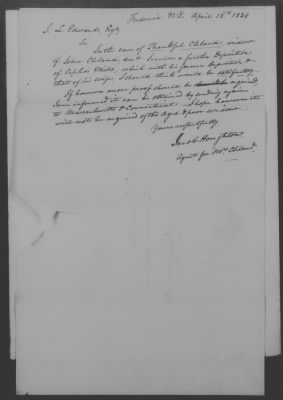 Fredonia N.Y. April 18th 1838
J. L. Edwards Esqr
Sir In the case of Thankful Cleland widow
of John Cleland decd I enclose a further Deposition
of Cephas Stiles, which with his former Deposition &
that of his wife I should think would be satisfactory
If however more proof should be required,
I am informed it can be obtained by sending again
to Massachusetts & Connecticut. I hope however it
will not be required of the aged & poor widow.
Yours respectfully
Jacob Houghton
Agent for Mrs Cleland.